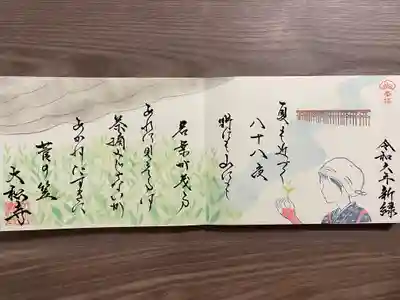 令和六年新緑
夏も近づく
八十八夜
野にも山にも
若葉が茂る
あれに見えるは
茶摘ぢやないか
あかねだすきに
菅の笠